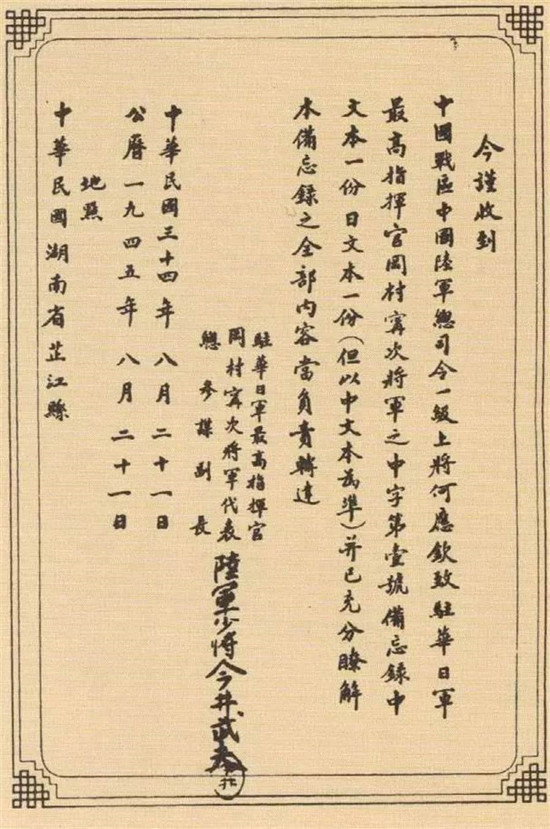 今謹收到
中國戰區中國陸軍總司令一級上將何應欽致駐華日軍
最高指揮官岡村寧次將軍之中字第壹號備忘錄中
文本一份日文本一份（但以中文本為準）并已充分瞭解
本備忘錄之全部內容當負責轉達
駐華日軍最高指揮官
岡村寧次將軍代表
總參謀副長
陸軍少將今井武夫
中華民國三十四年八月二十一日
公曆一九四五年八月二十一日
地點
中華民國湖南省芷江縣